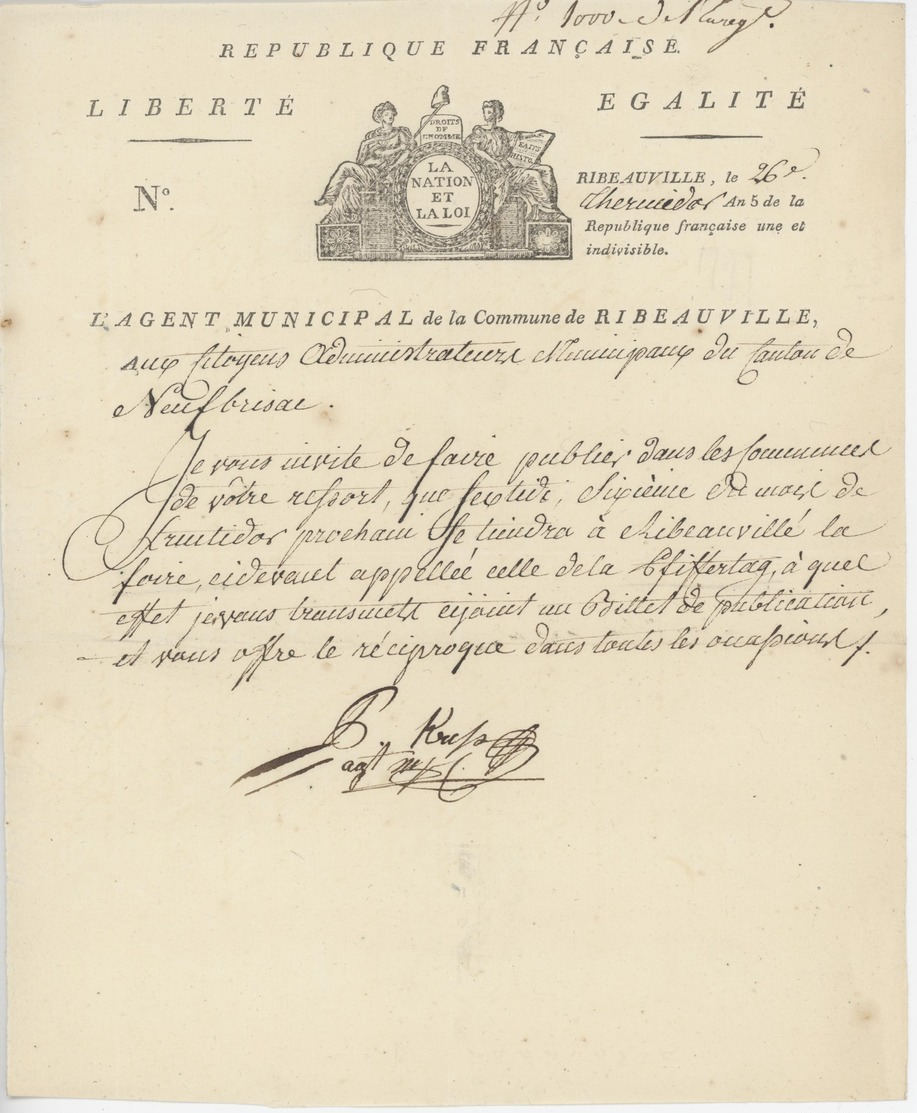 Nº. 1000. du Nureg.
REPUBLIQUE FRANÇAISE.
LIBERTÉ
EGALITÉ
DROITS
DE
L'HOMME
FAITS
HISTO.
LA
NATION
ET
LA LOI
Nº.
RIBEAUVILLE, le 26e.
thermidor An 5 de la
Republique française une et
indivisible.
L'AGENT MUNICIPAL de la Commune de RIBEAUVILLE,
aux Citoyens Administrateurs Municipaux du Canton de
Neufbrisac.
Je vous invite de faire publier dans les Communes
de vôtre ressort, que Sextidi, Sixième du mois de
fructidor prochain se tiendra à Ribeauvillé la
foire, cidevant appellée celle dela Pfiffertag, à quel
effet je vous transmets cijoint un Billet de publication,
et vous offre le réciproque dans toutes les occasions.
agt mpl